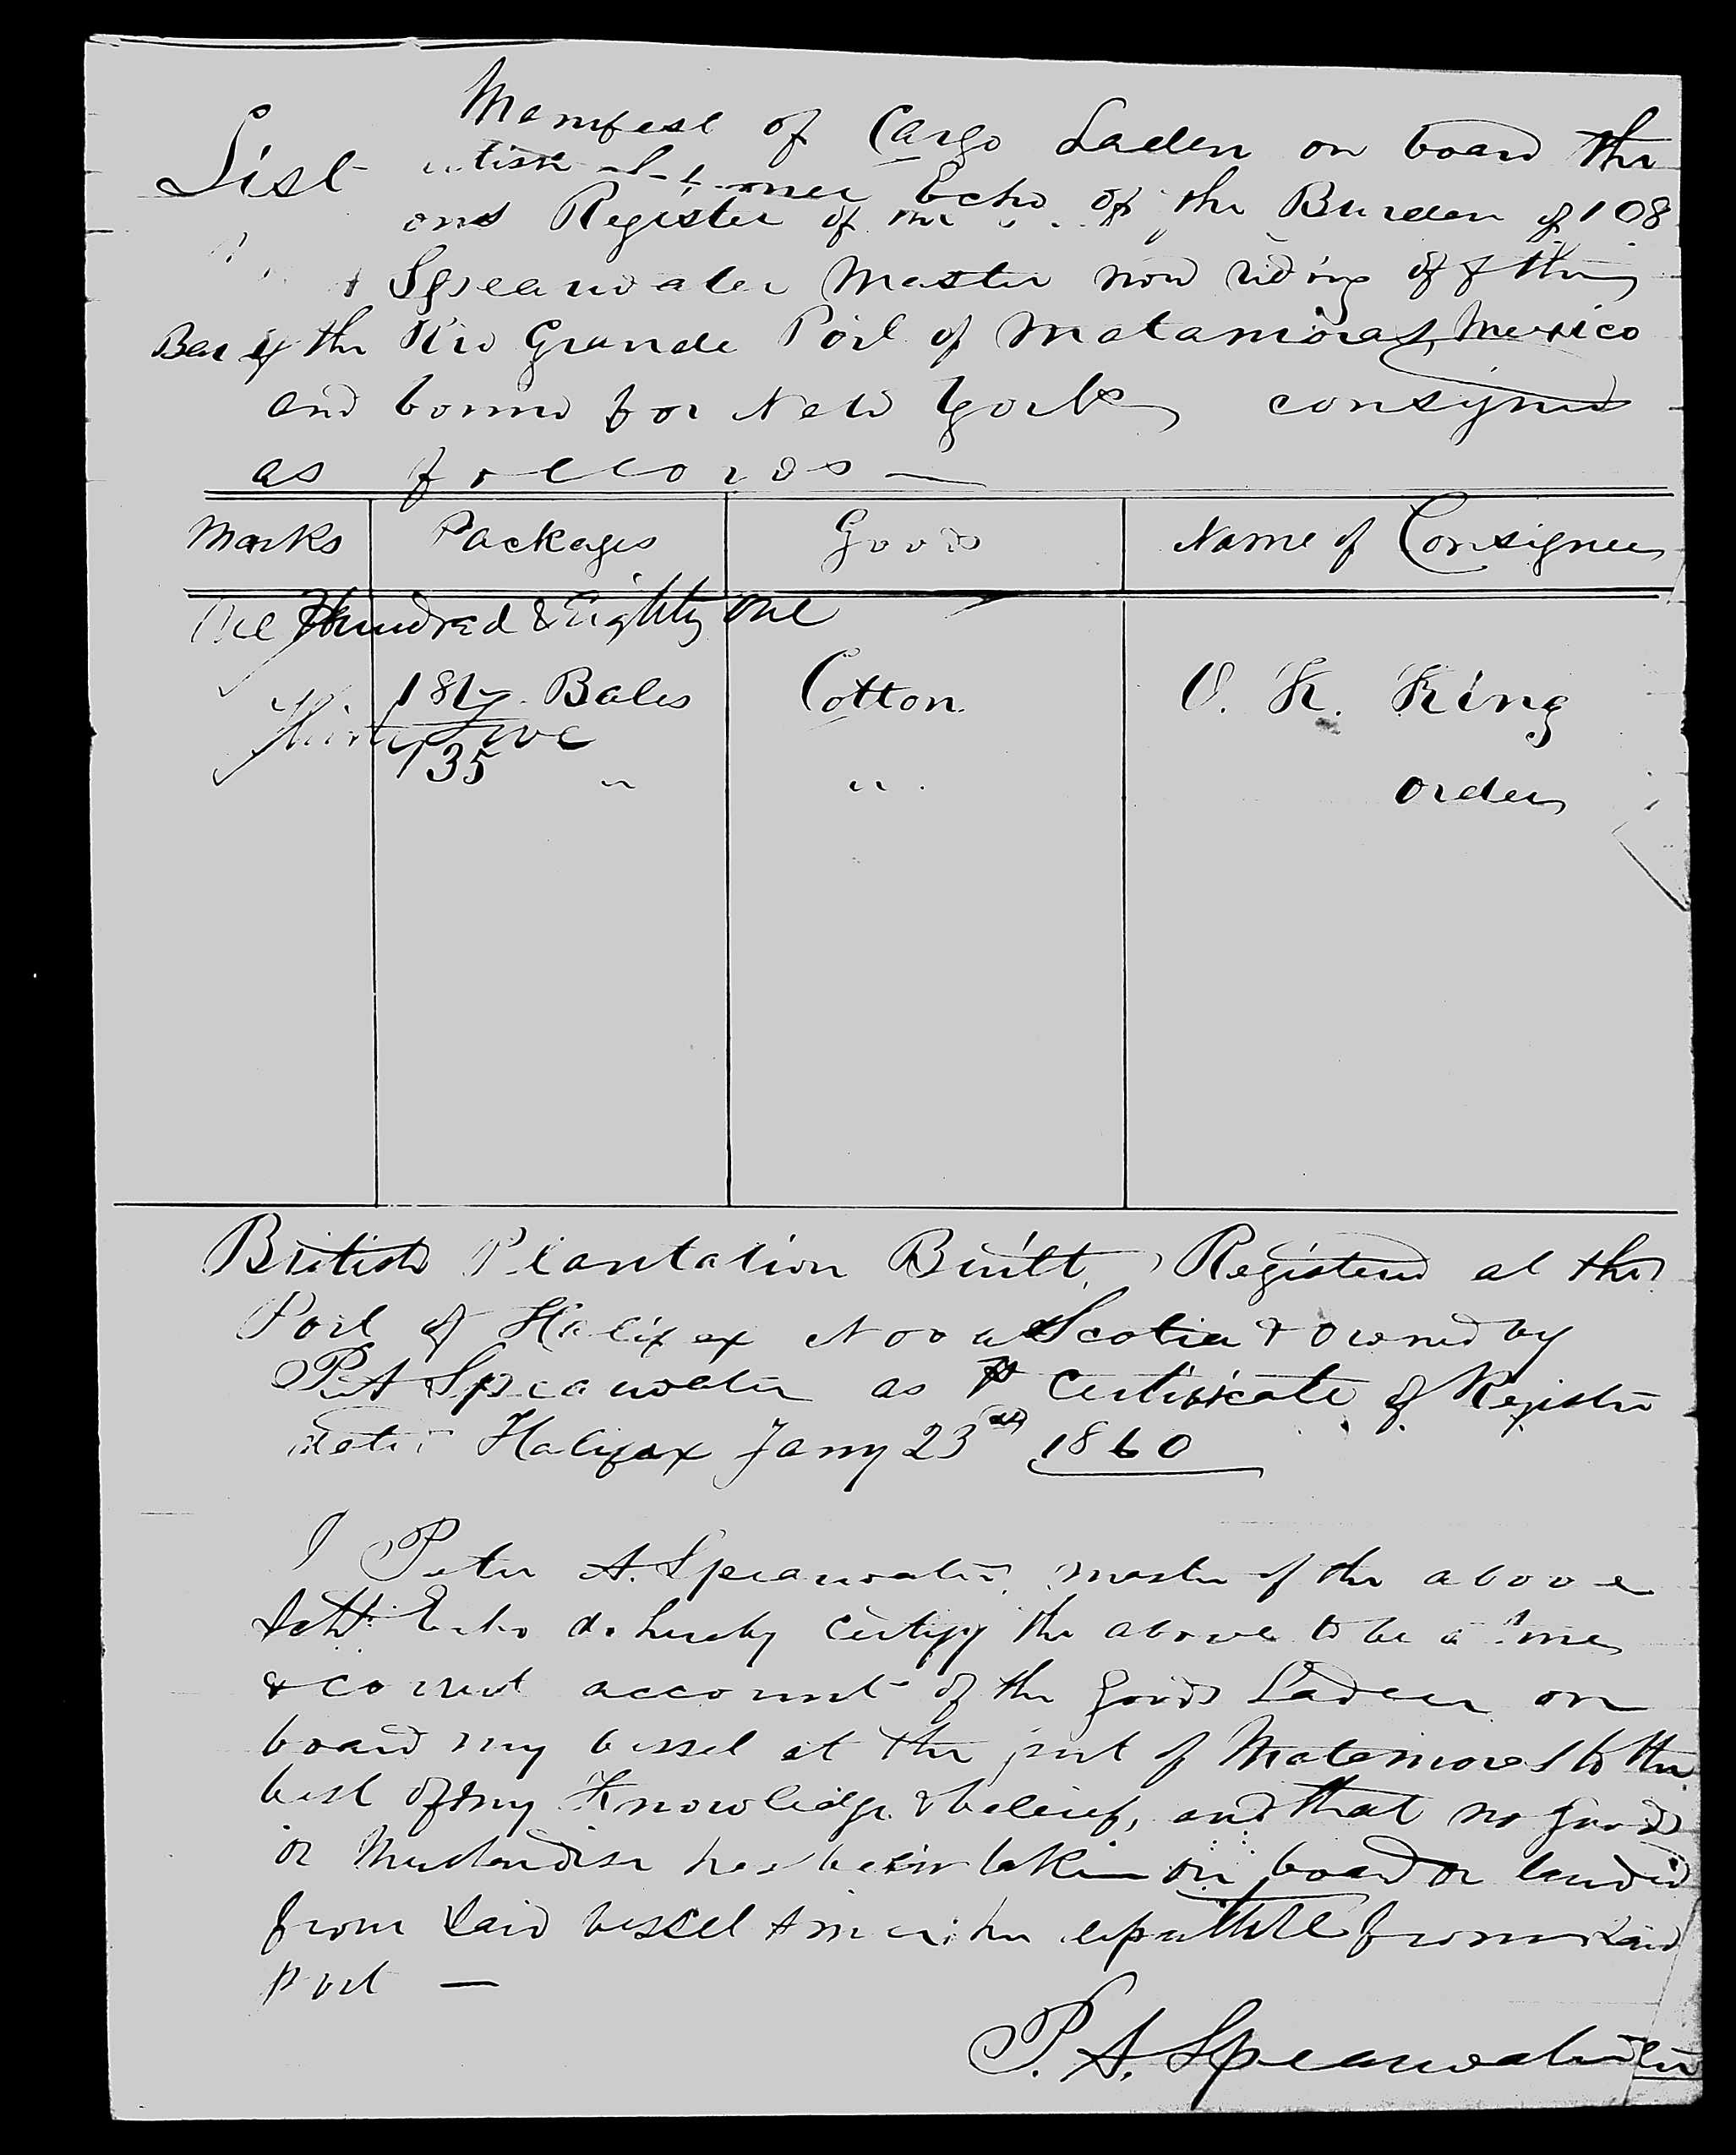 List
Manifest of Cargo Laden on board the
Schooner Echo of the Burden of 108
Register of
Spearwater Master now riding off the
Bar of the Rio Grande Port of Matamoras, Mexico
and bound for New York consigned
as follows —
Marks Packages Goods Name of Consignees
One Hundred & Eighty One
181 Bales Cotton O. K. King
Thirty five
35 " " Order
British Plantation Built, Registered at the
Port of Halifax Nova Scotia & owned by
P A Spearwater as Certificate of Register
dated Halifax Jany 23rd 1860
I Peter A. Spearwater, master of the above
Schr Echo do hereby certify the above to be a true
& correct account of the goods Laden on
board my vessel at the port of Matamoras to the
best of my Knowledge & beleief, and that no goods
or Merchandise has been taken on board or landed
from said vessel since her departure from said
port —
P. A. Spearwater